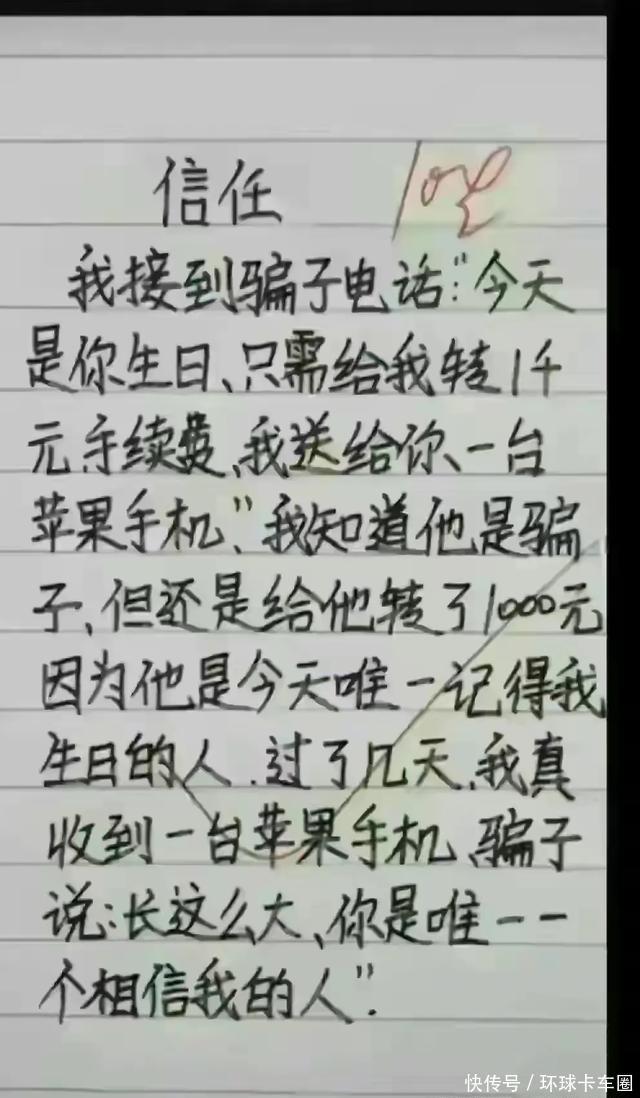 信任
我接到骗子电话:"今天
是你生日、只需给我转1千
元手续费、我送给你、一台
苹果手机"、我知道他是骗
子、但还是给他转了1000元
因为他是今天唯一记得我
生日的人.过了几天、我真
收到一台苹果手机、骗子
说:长这么大、你是唯一一
个相信我的人".
快传号/环球卡车圈